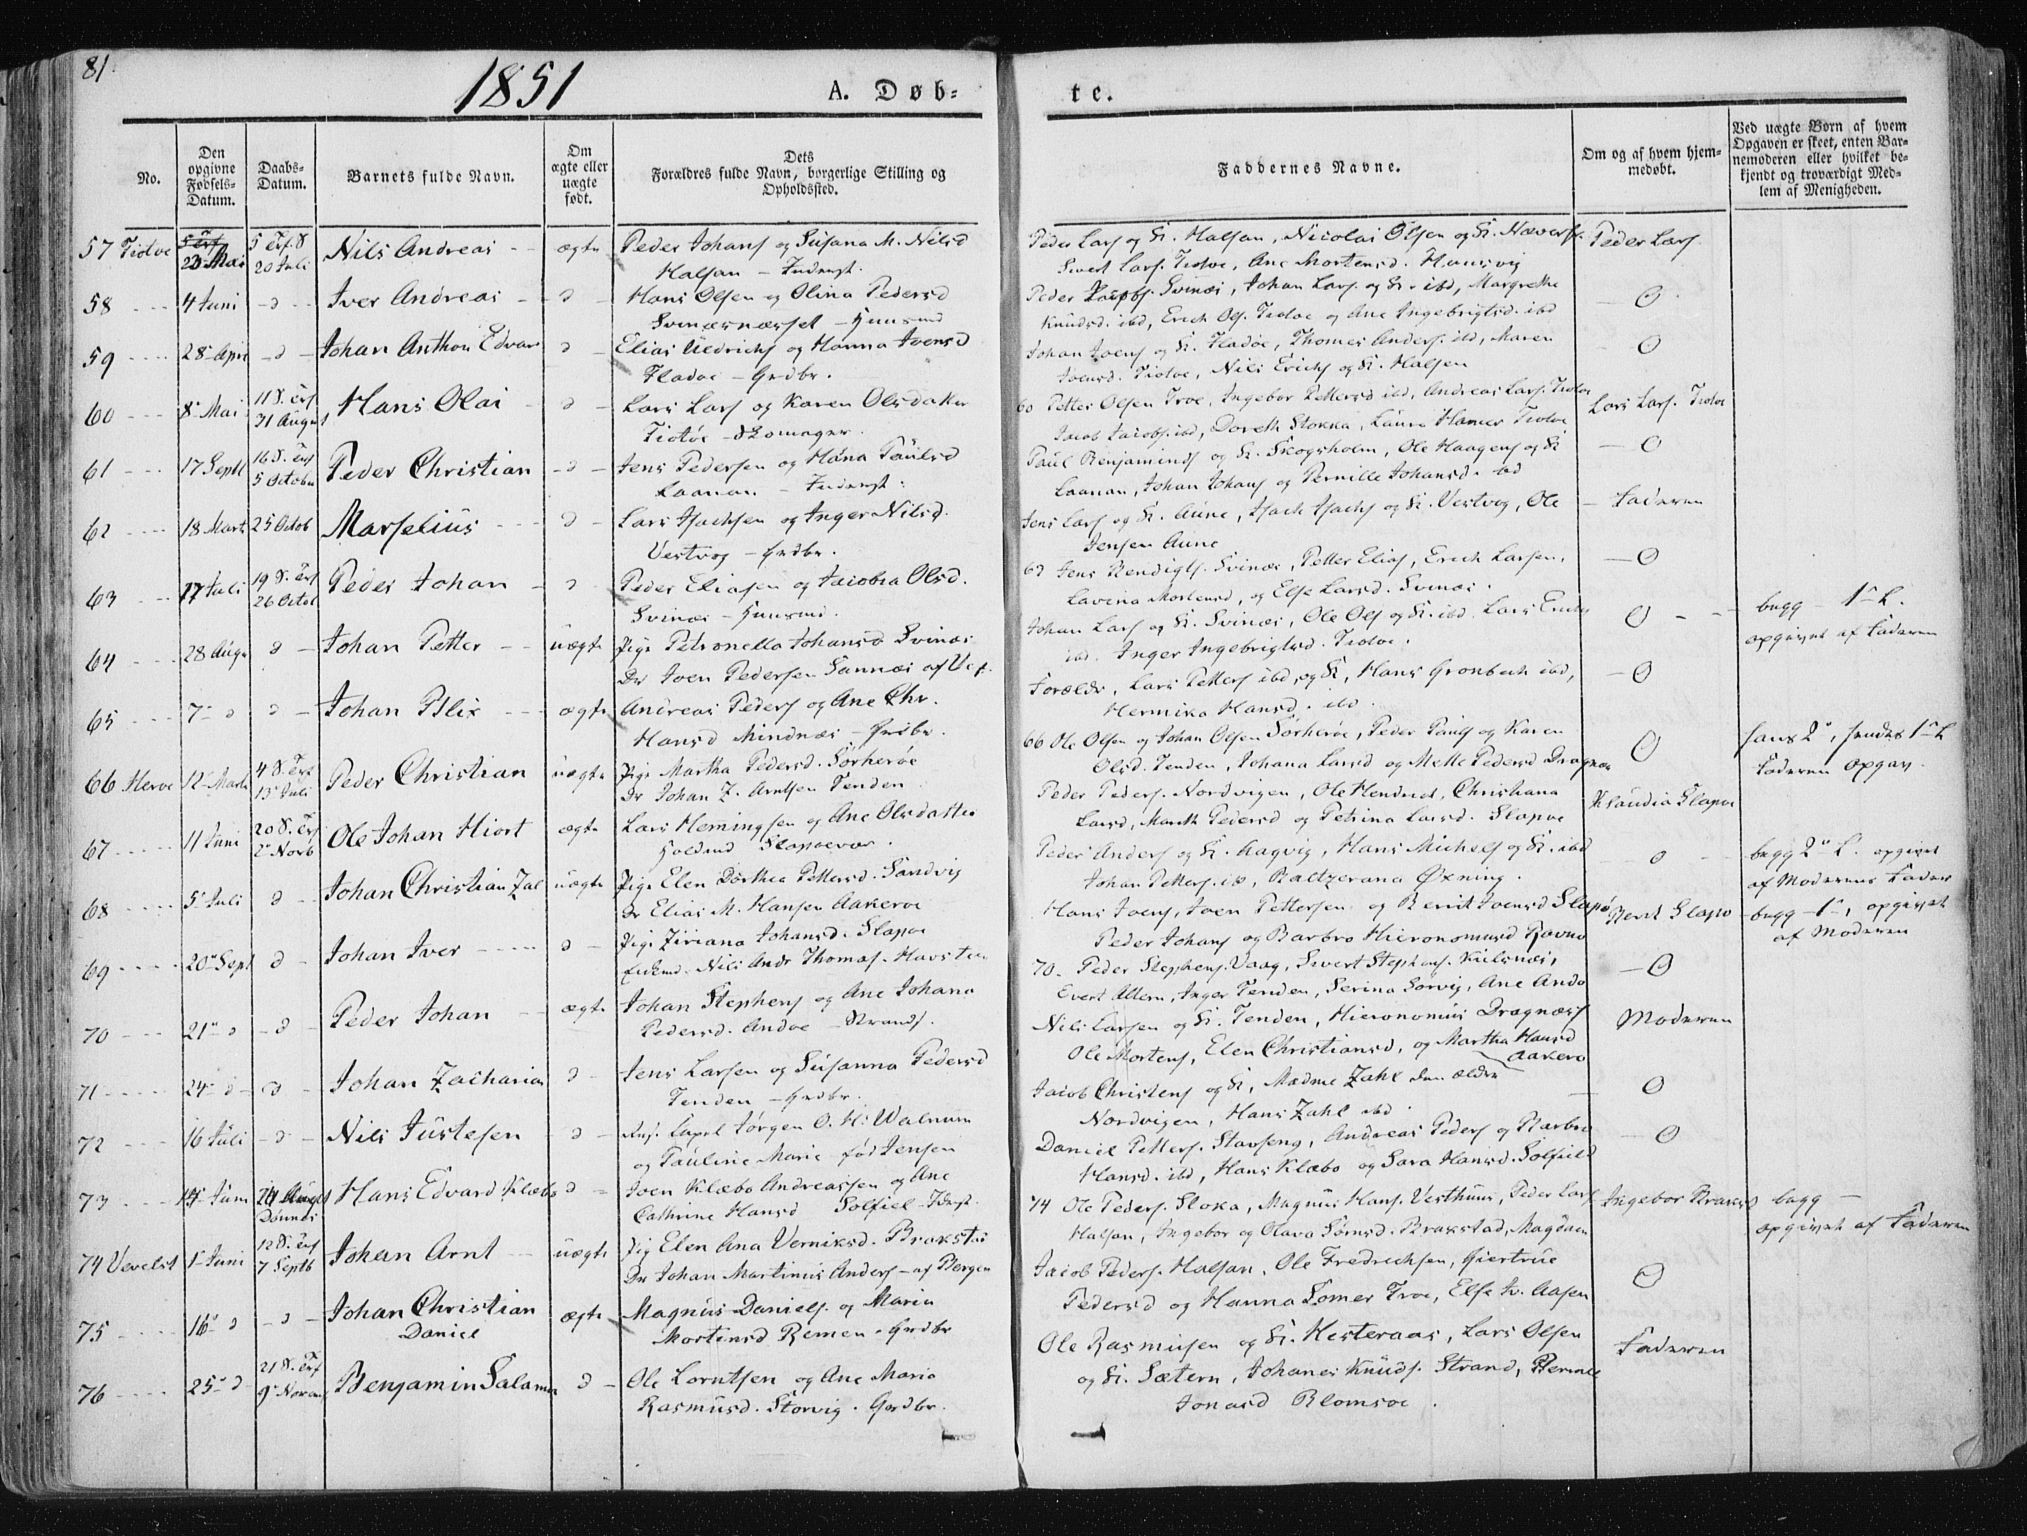 81.
1851
A. Døb-
te.
No.
Den
opgivne
Fødsels-
Datum.
Daabs-
Datum.
Barnets fulde Navn.
Om
ægte eller
uægte
født.
Dets
Forældres fulde Navn, borgerlige Stilling og
Opholdssted.
Faddernes Navne.
Om og af hvem hjem-
medøbt.
Ved uægte Børn af hvem
Opgaven er skeet, enten Bar-
nemoderen eller hvilket be-
kjendt og troværdigt Med-
lem af Menigheden.
57 Tiotøe 5 Trf. S 20 Juli Nils Andreas ægte Peder Johans og Susana M. Nilsd
Halsan - Inderst.
Peder Lars og K. Halsan, Nicolai Olsen og K.
Sivert Lars. Tiotøe, Ane Mortensd.
Peder Lars
58 4 Juni - d - Iver Andreas - d - Hans Olsen og Olina Pedersd
Svinæsnæset - Huusmd
Peder Jacobs. Svinæs, Johan Lars og K. ibd, Margrethe
Knudsd. ibd, Erich Ols. Tiotøe og Ane Ingebrigtsd. ibd
O
59 28 Apri - d - Johan Anthon Edvar d - Elias Hedrichs og Hanna Ivensd
Fladøe - Grdbr.
Johan Ivens og K. Fladøe, Thomas Anders. ibd, Maren
Ivensd. Tiotøe, Nils Erichs og K. Halsen
O
60 8 Mai 11 S. Trf 31 August Hans Olai - d - Lars Lars og Karen Olsdatter
Tiotøe - Skomager.
60 Petter Olsen Troe, Ingebor Pettersd ibd, Andreas Lars. Tiotøe
Jacob Jacobs. ibd, Doreth Stokka, Laura Hamer Tiotøe
Lars Lars. Tiotøe
61 17 Septb 16 S. Trf 5 Octobr Peder Christian - d - Jens Pedersen og Hana Paulsd
Laanan - Inderst.
Paul Benjamins og K. Skogsholm, Ole Haagens og K
Laanan, Johan Johans og Pernille Johansd. ibd
O
62 18 Marts 25 Octob Marselius - d - Lars Isachsen og Inger Nilsd.
Vestvog - Grdbr.
Jens Lars og K. Aune, Isach Isachs og K. Vestvog, Ole
Jensen Aune
Faderen
63 17 Juli 19 S. Trf 26 Octob Peder Johan - d Peder Eliasen og Jacobia Olsd.
Svinæs - Huusmd.
63 Jens Bendigts. Svinæs, Petter Elias, Erich Larsen,
Lavina Mortensd, og Else Larsd. Svinæs.
O
64 28 Augu d - Johan Petter uægte Pige Petronella Johansd Svinæs
Dr Iven Pedersen Sannæs af Vef.
Johan Lars og K. Svinæs, Ole Ols og K. ibd. Lars Erichs
ibd. Inger Ingebrigtsd. Tiotøe.
O
begg - 1e L.
opgivet af Faderen
65 7 - d d - Johan Blix ægte Andreas Peders og Ane Chr.
Hansd Mindnæs - Grdbr.
Forældr, Lars Petters ibd, og K, Hans Grønbech ibd,
Hermika Hansd. ibd.
O
66 Herøe 12 Marts 4 S. Trf 13 Juli Peder Christian uægte Pige Martha Pedersd. Sørherøe
Dr Johan Z. Arntsen Tenden
66 Ole Olsen og Johan Olsen Sørherøe, Peder Pauls og Karen
Olsd. Tenden, Johana Larsd og Mette Pedersd Dragnæs
O
hans 2, hendes 1e L
Faderen Opgav.
67 11 Juni 20 S. Trf 2 Novb Ole Johan Hiort ægte Lars Hemingsen og Ane Olsdatter
Slapøevær.
Peder Peders. Nordvigen, Ole Hendrics, Christiana
Larsd, Marith Pedersd og Petrina Larsd. Slapøe
Klaudia Slapøe
68 5 Juli d Johan Christian Zal uægte Pige Elen Dorthea Pettersd. Sandvig
Dr Elias M. Hansen Aakerøe
Peder Anders og K. Lagvig, Hans Michels og K. ibd
Johan Petters. ib, Baltzerana Øxning.
O
begg 2 L. opgivet
af Moderens Fader
69 20 Sept d Johan Iver d - Pige Ziriana Johansd. Slapøe
Enkmd. Nils Andr Thomas. Havsteen
Hans Ivens, Iven Pettersen og Berrit Ivensd Slapø
Peder Johans og Barbro Hieronomusd Ravnø
Berit Slapø
begg 1e, opgivet
af Moderen
70 21 d - d Peder Johan ægte Johan Stephens og Ane Johana
Pedersd. Andøe - Strands.
70. Peder Stephens. Vaag, Sivert Stephens. Kulsnæs,
Evert Altern, Inger Tenden, Serina Sørvig, Ane Andø
O
71 24 d - d Johan Zacharias d Jens Larsen og Susanna Pedersd
Tenden - Grdbr.
Nils Larsen og K. Tenden, Hieronomus Dragnæs
Ole Mortens, Elen Christiansd, og Martha Hansd
Aakerø
Moderen
72 16 Juli - d Nils Justesen d - Jørgen O. H. Walnum
og Pauline Marie fød Jensen
Jacob Christens og K, Madme Zahl den ældre
Nordvigen, Hans Zahl ibd.
O
73 Juni Dønnæs Hans Edvard Klæbo d - Iven Klæbo Andreassen og Ane
Cathrine Hansd Solfiel - Inderst.
Daniel Petters. Stavseng, Andreas Peders og Barbro
Hansd. ibd, Hans Klæbo og Sara Hansd. Solfield
O
74 Vevelst 1 Juni 12 S. Trf 7 Septb Johan Arnt uægte Pig Elen Ana Verniksd. Brakstad
Dr Johan Martinus Anders - af Bergen
74 Ole Peders. Stoka, Magnus Hans. Vesthuus, Peder Lars
Halsan, Ingebor og Olava Sørnsd. Brakstad, Magdalen
Ingebor Brakst
begg -
opgivet af Faderen
75 16 d - d Johan Christian
Daniel ægte Magnus Daniels. og Marin
Mortensd Remen - Grdbr
Jacob Peders. Halsan, Ole Fredrechsen, Giertrue
Pedersd og Hanna Lomer Troe, Else Iv. Aasen
O
76 25 d 21 S. Trf 9 Novem Benjamin Salamon d - Ole Lorntsen og Ane Maria
Rasmusd. Storvig. Grdbr.
Ole Rasmusen og K. Hesteraas, Lars Olsen
og K. Sætern, Johanes Knuds. Strand,
Jonasd Blomsøe.
Faderen